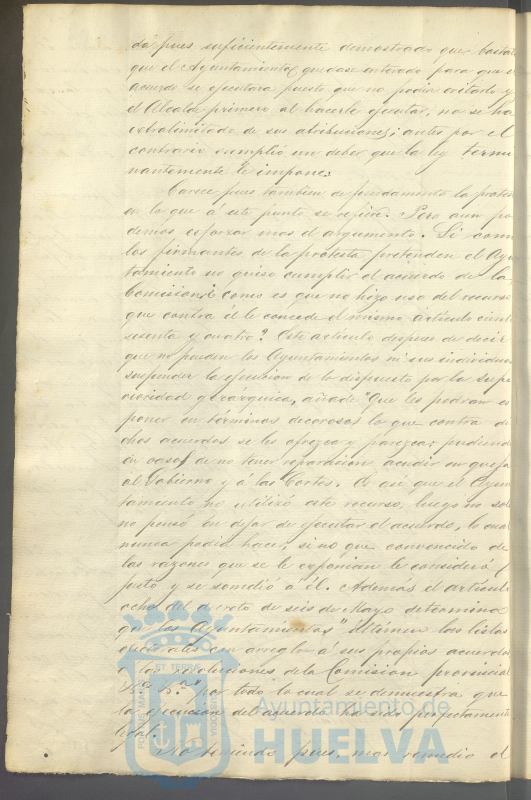 da pues suficientemente demostrado que basta
que el Ayuntamiento quedase enterado para que el
acuerdo se ejecutara puesto que no podia evitarlo y
el Alcalde primero al hacerle ejecutar, no se ha
extralimitado de sus atribuciones; antes por el
contrario cumplió un deber que la ley termi
nantemente le impone.
Carece pues tambien de fundamento la protes
en lo que á este punto se refiere. Pero aun po
demos esforzar mas el argumento. Si como
los firmantes de la protesta pretenden el Ayun
tamiento no quiso cumplir el acuerdo de la
Comision ¿como es que no hizo uso del recurso
que contra él le concede el mismo artículo ciento
sesenta y cuatro? Este artículo despues de decir
que no pueden los Ayuntamientos ni sus individuos
suspender la ejecucion de lo dispuesto por la supe
rioridad gerarquica, añade "Que les podran es
poner en términos decorosos lo que contra di
chos acuerdos se les ofrezca y parezca; pudiendo
en caso de no tener reparacion acudir en queja
al Gobierno y á las Cortes. Es asi que el Ayun
tamiento no utilizó este recurso, luego no solo
no pensó en dejar de ejecutar el acuerdo, lo cual
nunca podia hacer, si no que convencido de
las razones que se le exponian le consideró
justo y se sometió á él. Además el artículo
ocho del decreto de seis de Mayo determina
que los Ayuntamientos "Ultimen las listas
con arreglo á sus propios acuerdos
ó las resoluciones de la Comision provincial
por todo lo cual se demuestra que
la ejecucion del acuerdo ha sido perfectamente
legal.
No teniendo pues, mas remedio el
Ayuntamiento de
HUELVA